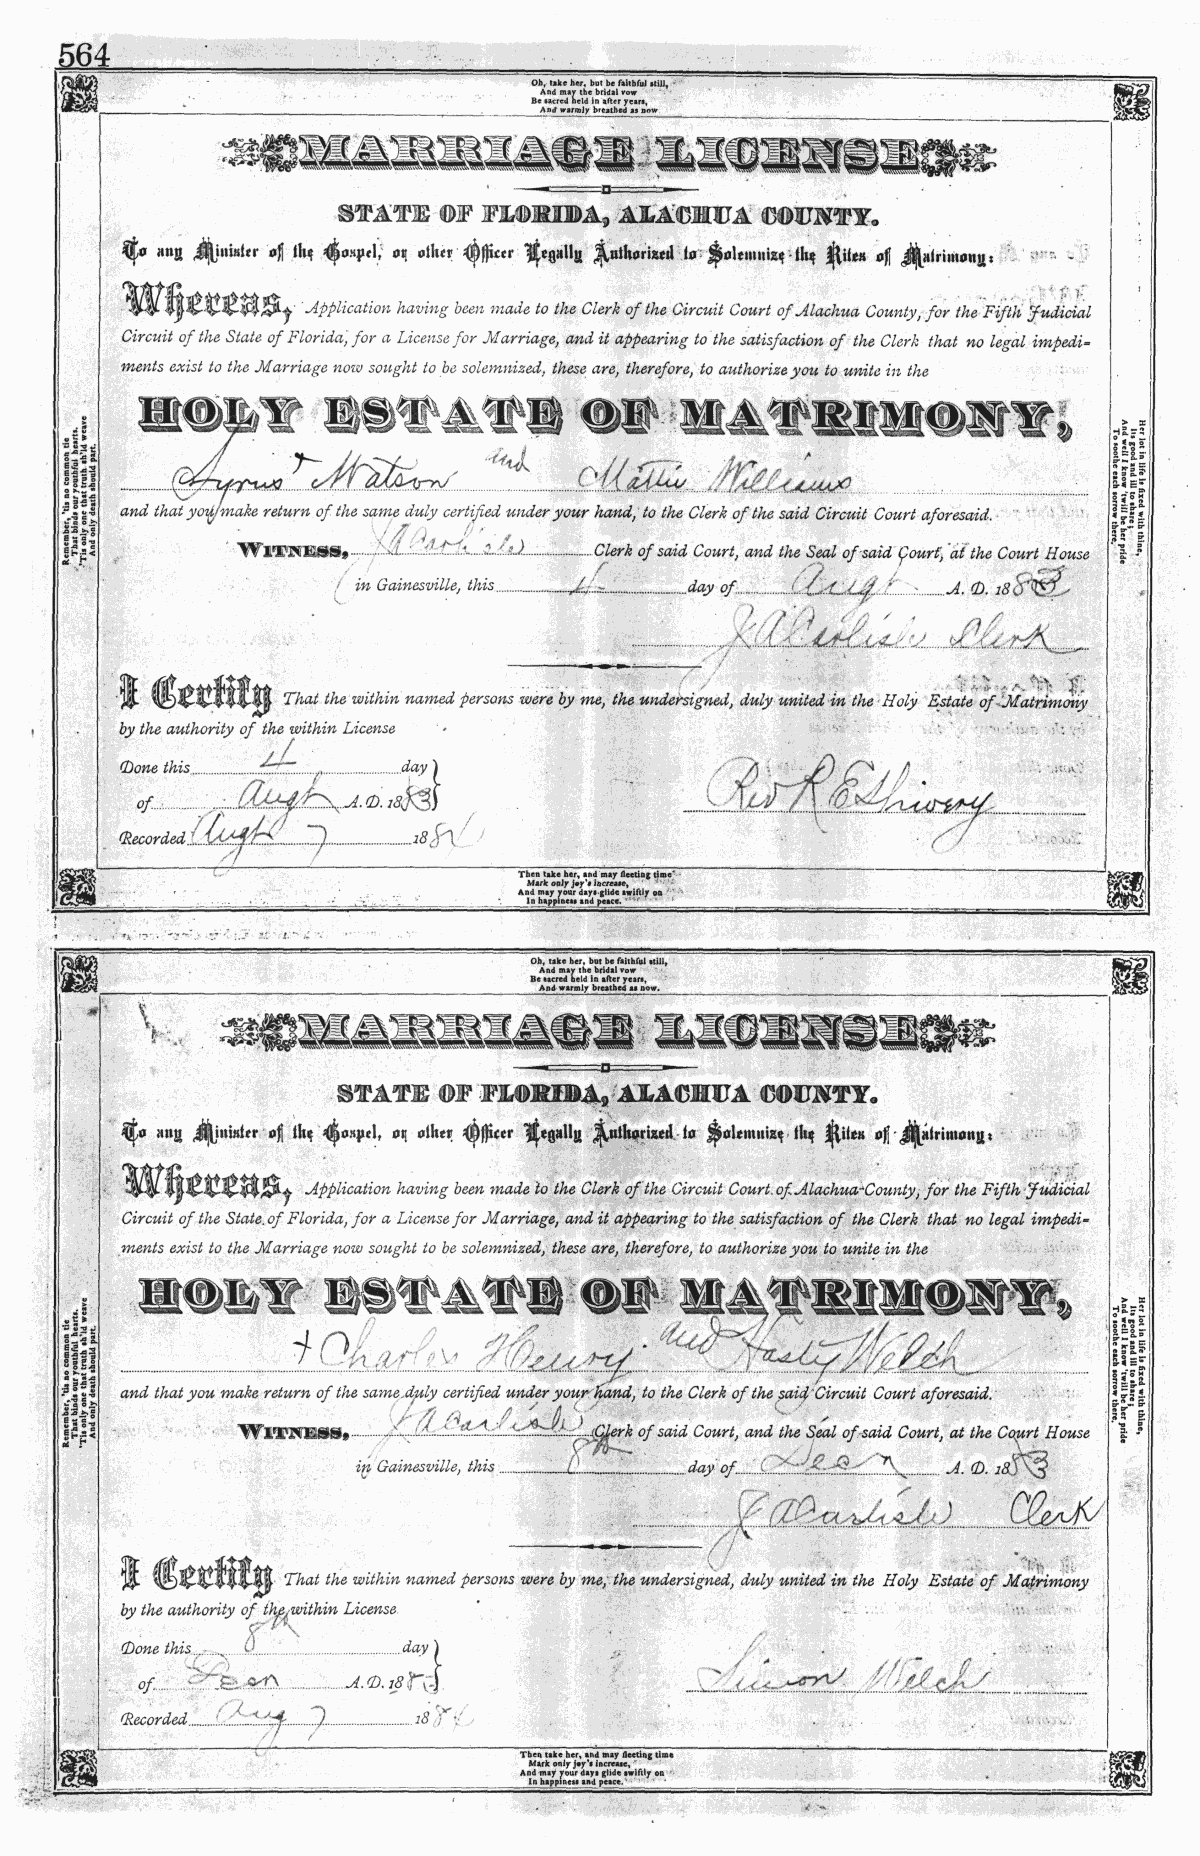 564
Oh, take her, but be faithful still,
And may the bridal vow
Be sacred held in after years,
And warmly breathed as now
MARRIAGE LICENSE
STATE OF FLORIDA, ALACHUA COUNTY.
To any Minister of the Gospel, or other Officer Legally Authorized to Solemnize the Rites of Matrimony:
Whereas, Application having been made to the Clerk of the Circuit Court of Alachua County, for the Fifth Judicial
Circuit of the State of Florida, for a License for Marriage, and it appearing to the satisfaction of the Clerk that no legal impedi-
ments exist to the Marriage now sought to be solemnized, these are, therefore, to authorize you to unite in the
HOLY ESTATE OF MATRIMONY,
Syrus + Watson and Mattie Williams
and that you make return of the same duly certified under your hand, to the Clerk of the said Circuit Court aforesaid.
WITNESS, J A Carlisle Clerk of said Court, and the Seal of said Court, at the Court House
in Gainesville, this 4 day of Augt A. D. 1883
J A Carlisle Clerk
I Certify That the within named persons were by me, the undersigned, duly united in the Holy Estate of Matrimony
by the authority of the within License
Done this 4 day
of Augt A. D. 1883
Rev R E Shivery
Recorded Augt 7 1884
Then take her, and may fleeting time
Mark only joy's increase,
And may your days glide swiftly on
In happiness and peace.
Remember, 'tis no common tie
That binds our youthful hearts.
'Tis only one that truth sh'ld weave
And only death should part.
Her lot in life is fixed with thine,
Its good and ill to share;
And well I know 'twill be her pride
To soothe each sorrow there.
Oh, take her, but be faithful still,
And may the bridal vow
Be sacred held in after years,
And warmly breathed as now.
MARRIAGE LICENSE
STATE OF FLORIDA, ALACHUA COUNTY.
To any Minister of the Gospel, or other Officer Legally Authorized to Solemnize the Rites of Matrimony:
Whereas, Application having been made to the Clerk of the Circuit Court of Alachua County, for the Fifth Judicial
Circuit of the State of Florida, for a License for Marriage, and it appearing to the satisfaction of the Clerk that no legal impedi-
ments exist to the Marriage now sought to be solemnized, these are, therefore, to authorize you to unite in the
HOLY ESTATE OF MATRIMONY,
+ Charles Henry and Hasty Welch
and that you make return of the same duly certified under your hand, to the Clerk of the said Circuit Court aforesaid.
WITNESS, J A Carlisle Clerk of said Court, and the Seal of said Court, at the Court House
in Gainesville, this 8th day of Decn A. D. 1883
J A Carlisle Clerk
I Certify That the within named persons were by me, the undersigned, duly united in the Holy Estate of Matrimony
by the authority of the within License
Done this 8th day
of Decn A. D. 188
Simon Welch
Recorded Aug 7 1884
Then take her, and may fleeting time
Mark only joy's increase,
And may your days glide swiftly on
In happiness and peace.
Remember, 'tis no common tie
That binds our youthful hearts.
'Tis only one that truth sh'ld weave
And only death should part.
Her lot in life is fixed with thine,
Its good and ill to share;
And well I know 'twill be her pride
To soothe each sorrow there.